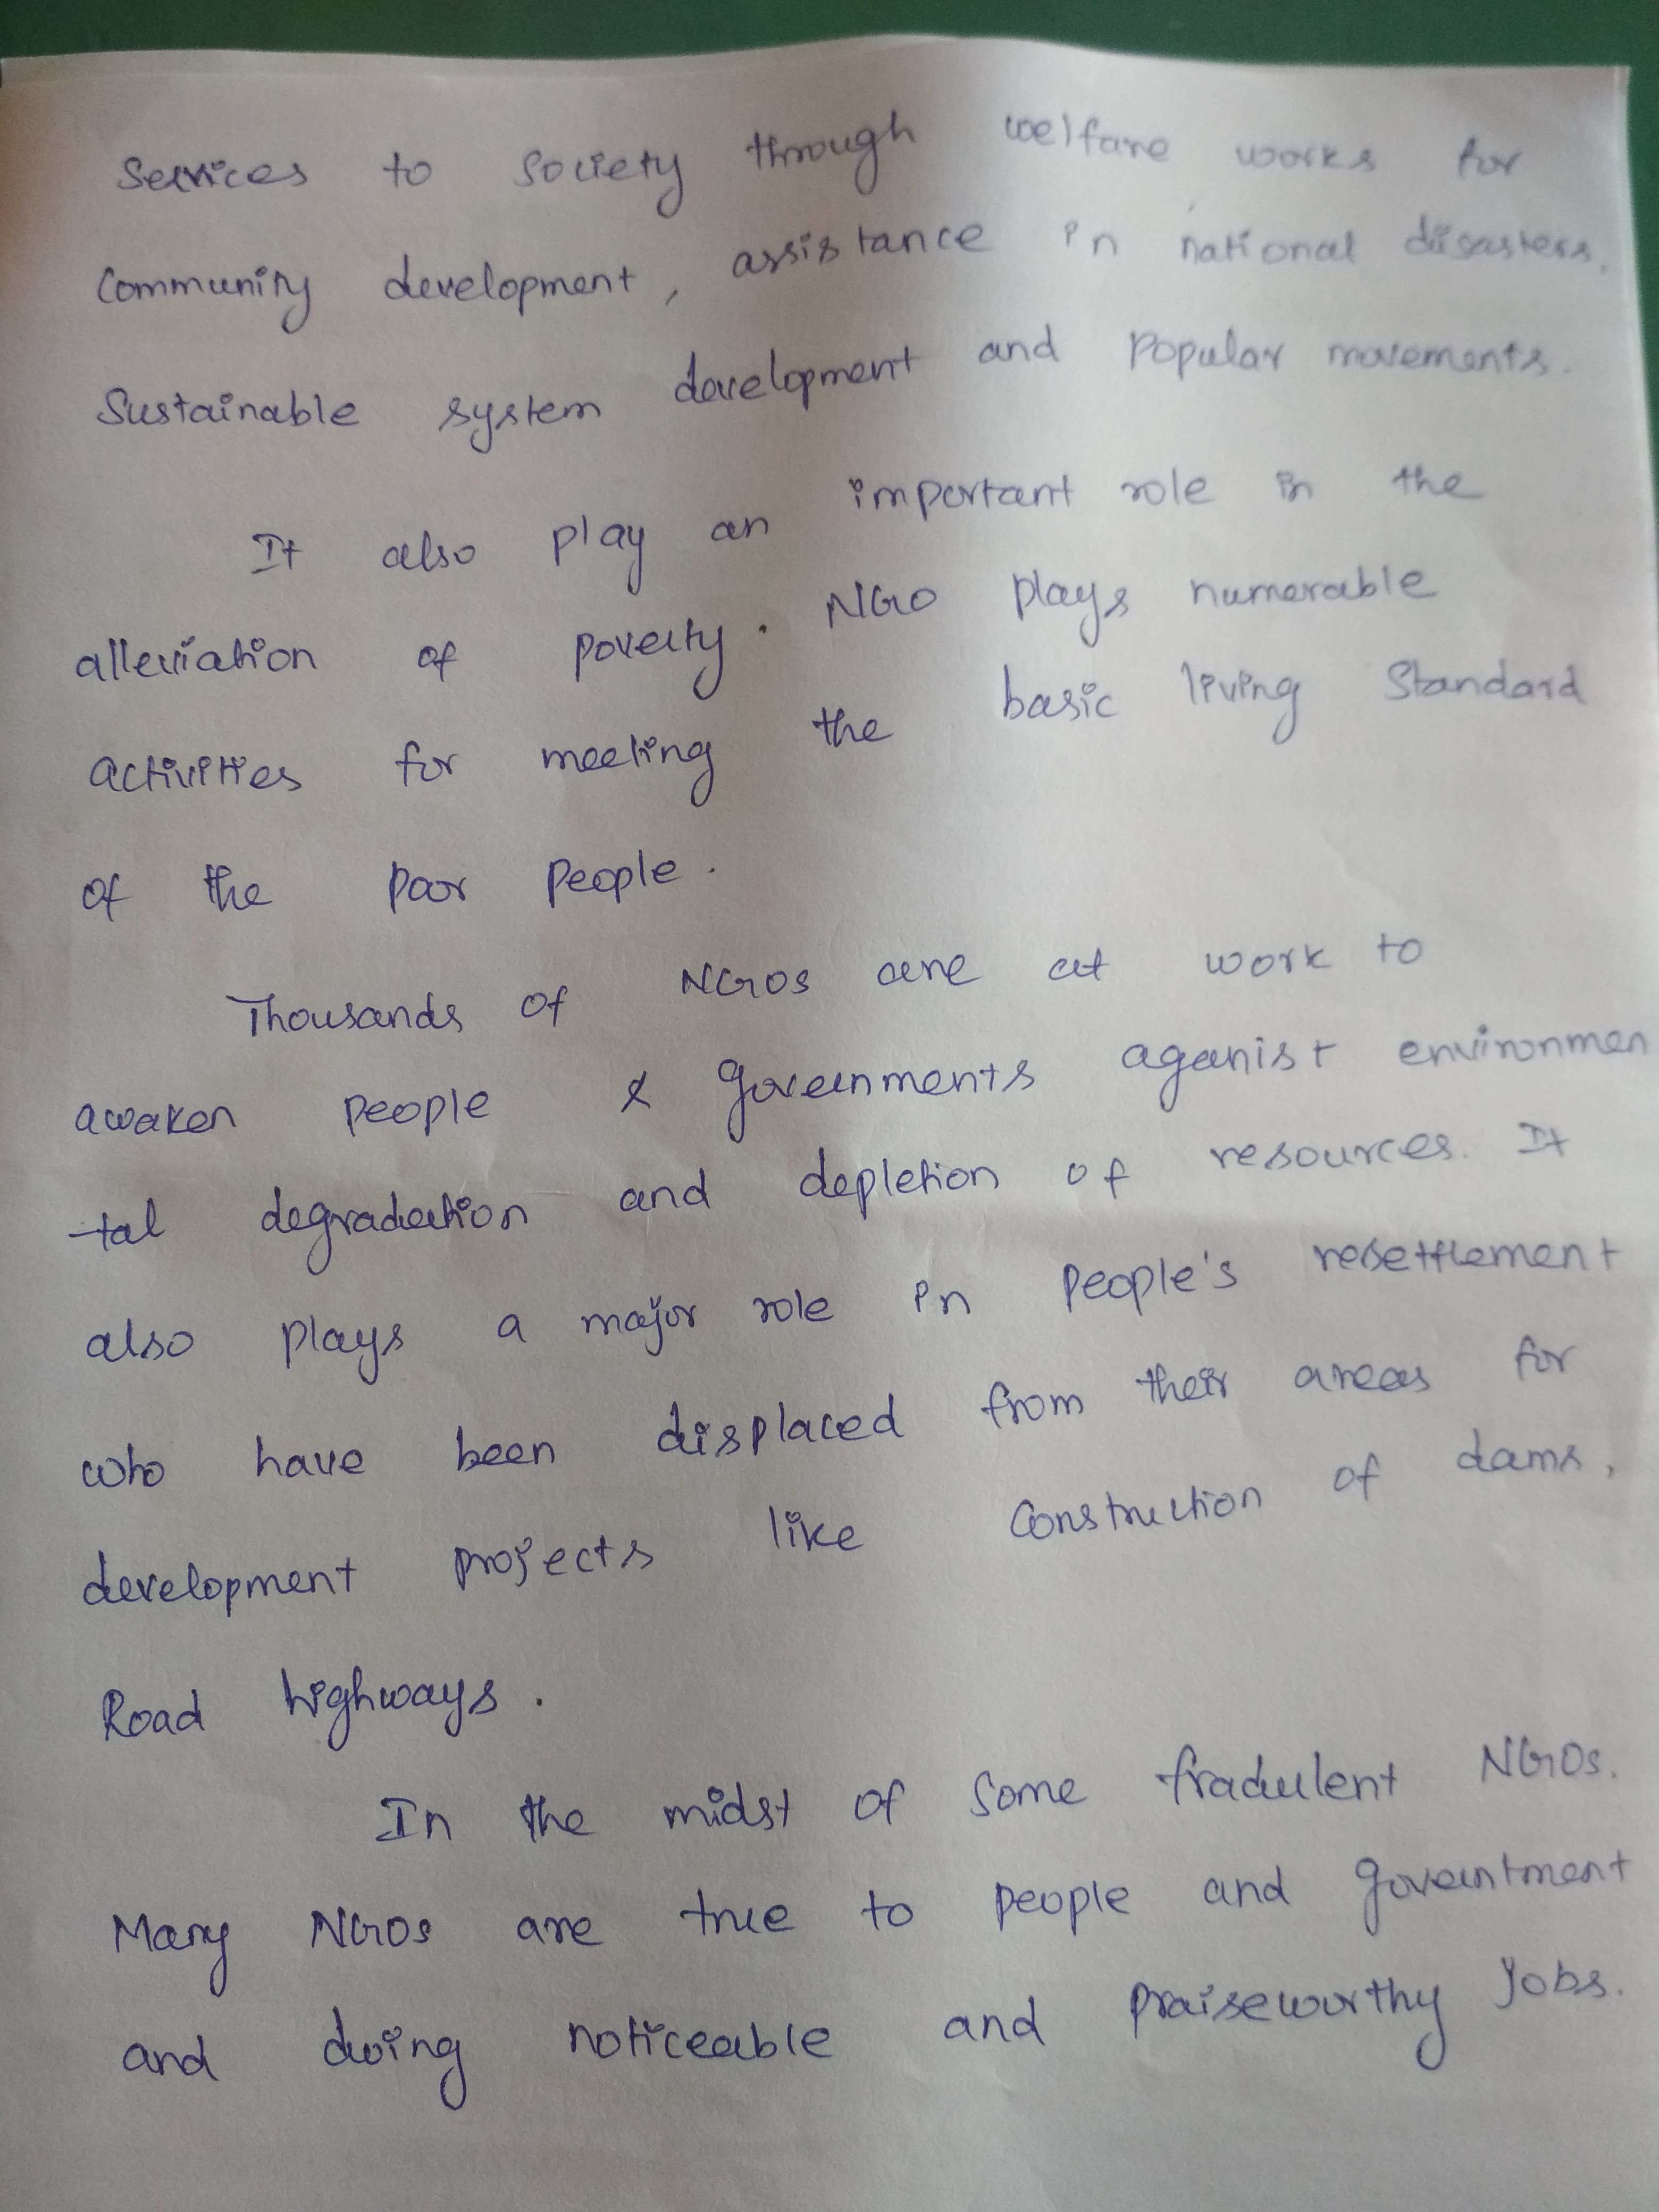 Services to Society through welfare works for
Community development, assistance in national disasters.
Sustainable system development and popular movements.
It also play an important role in the
alleviation of poverty. NGO plays numerable
activities for meeting the basic living Standard
of the poor people.
Thousands of NGOs are at work to
awaken people & governments aganist environmen
-tal degradation and depletion of resources. It
also plays a major role in people's resettlement
who have been displaced from their areas for
development projects like Construction of dams,
Road highways.
In the midst of some fradulent NGOs.
Many NGOs are true to people and governtment
and doing noticeable and praiseworthy jobs.